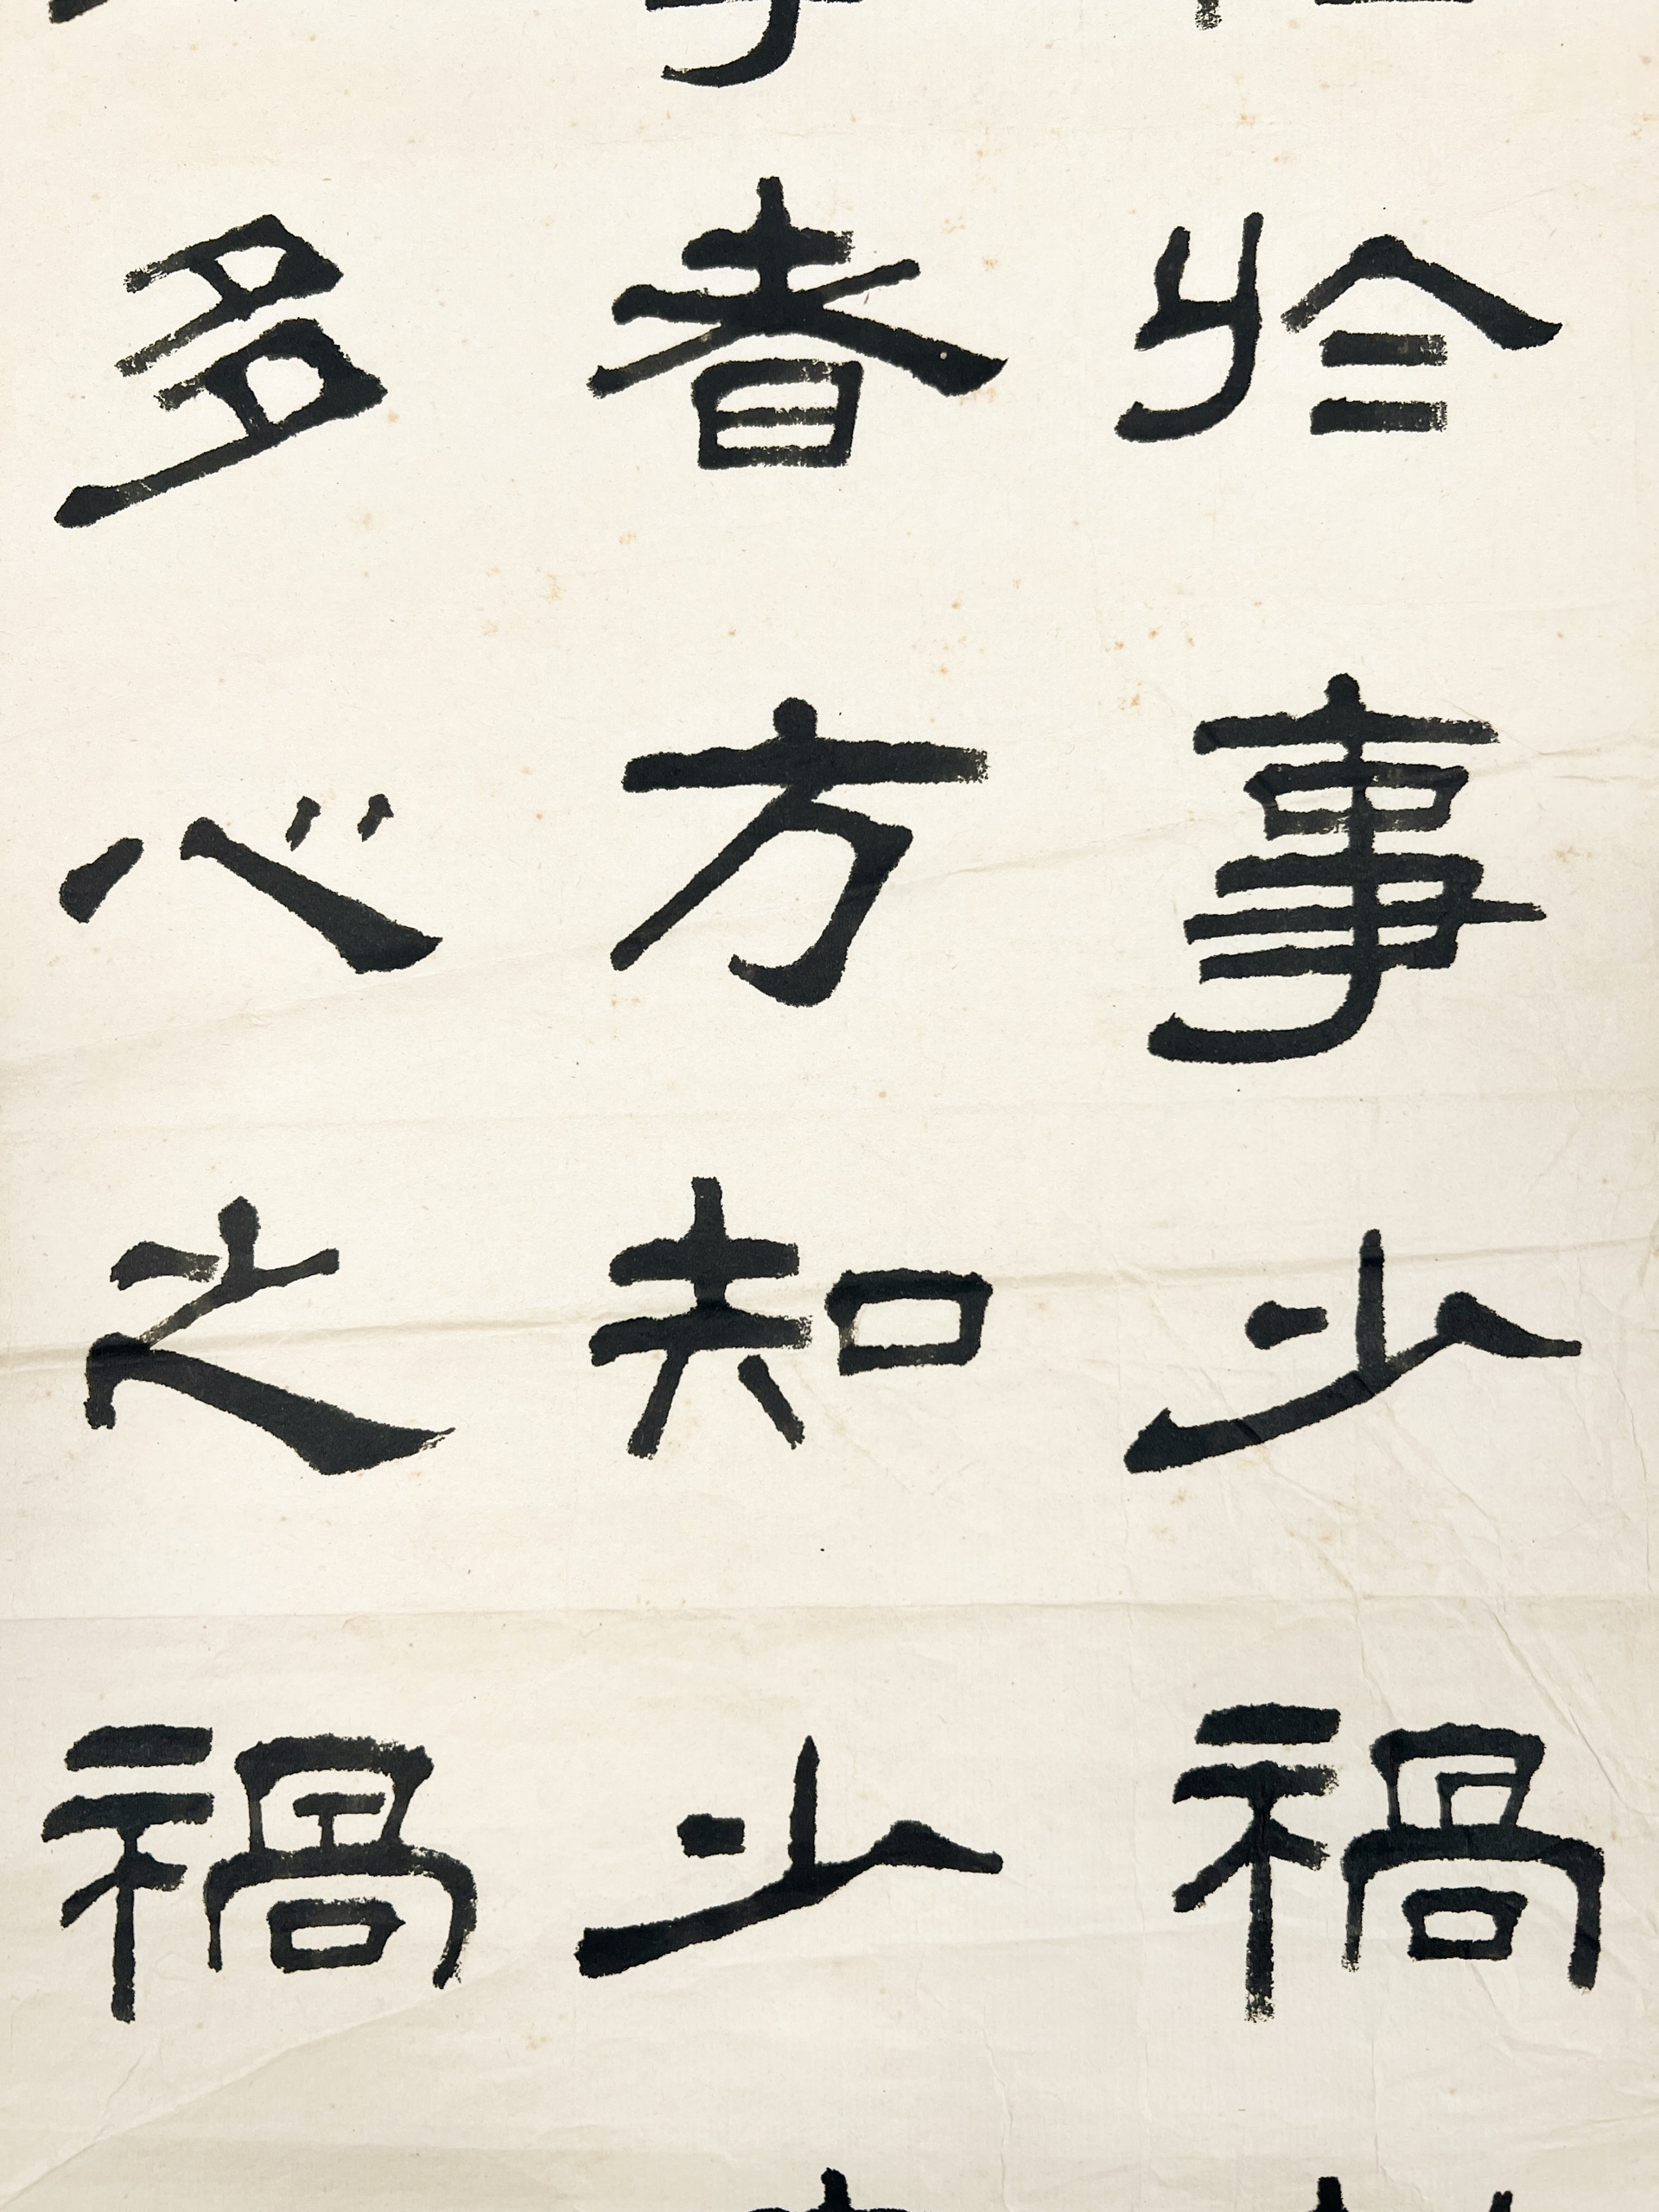 於事少禍
者方知少
多心之禍